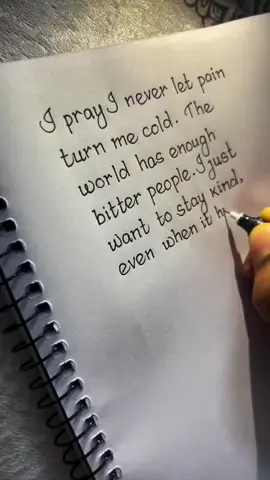 I pray I never let pain
turn me cold. The
world has enough
bitter people. I just
want to stay kind,
even when it h